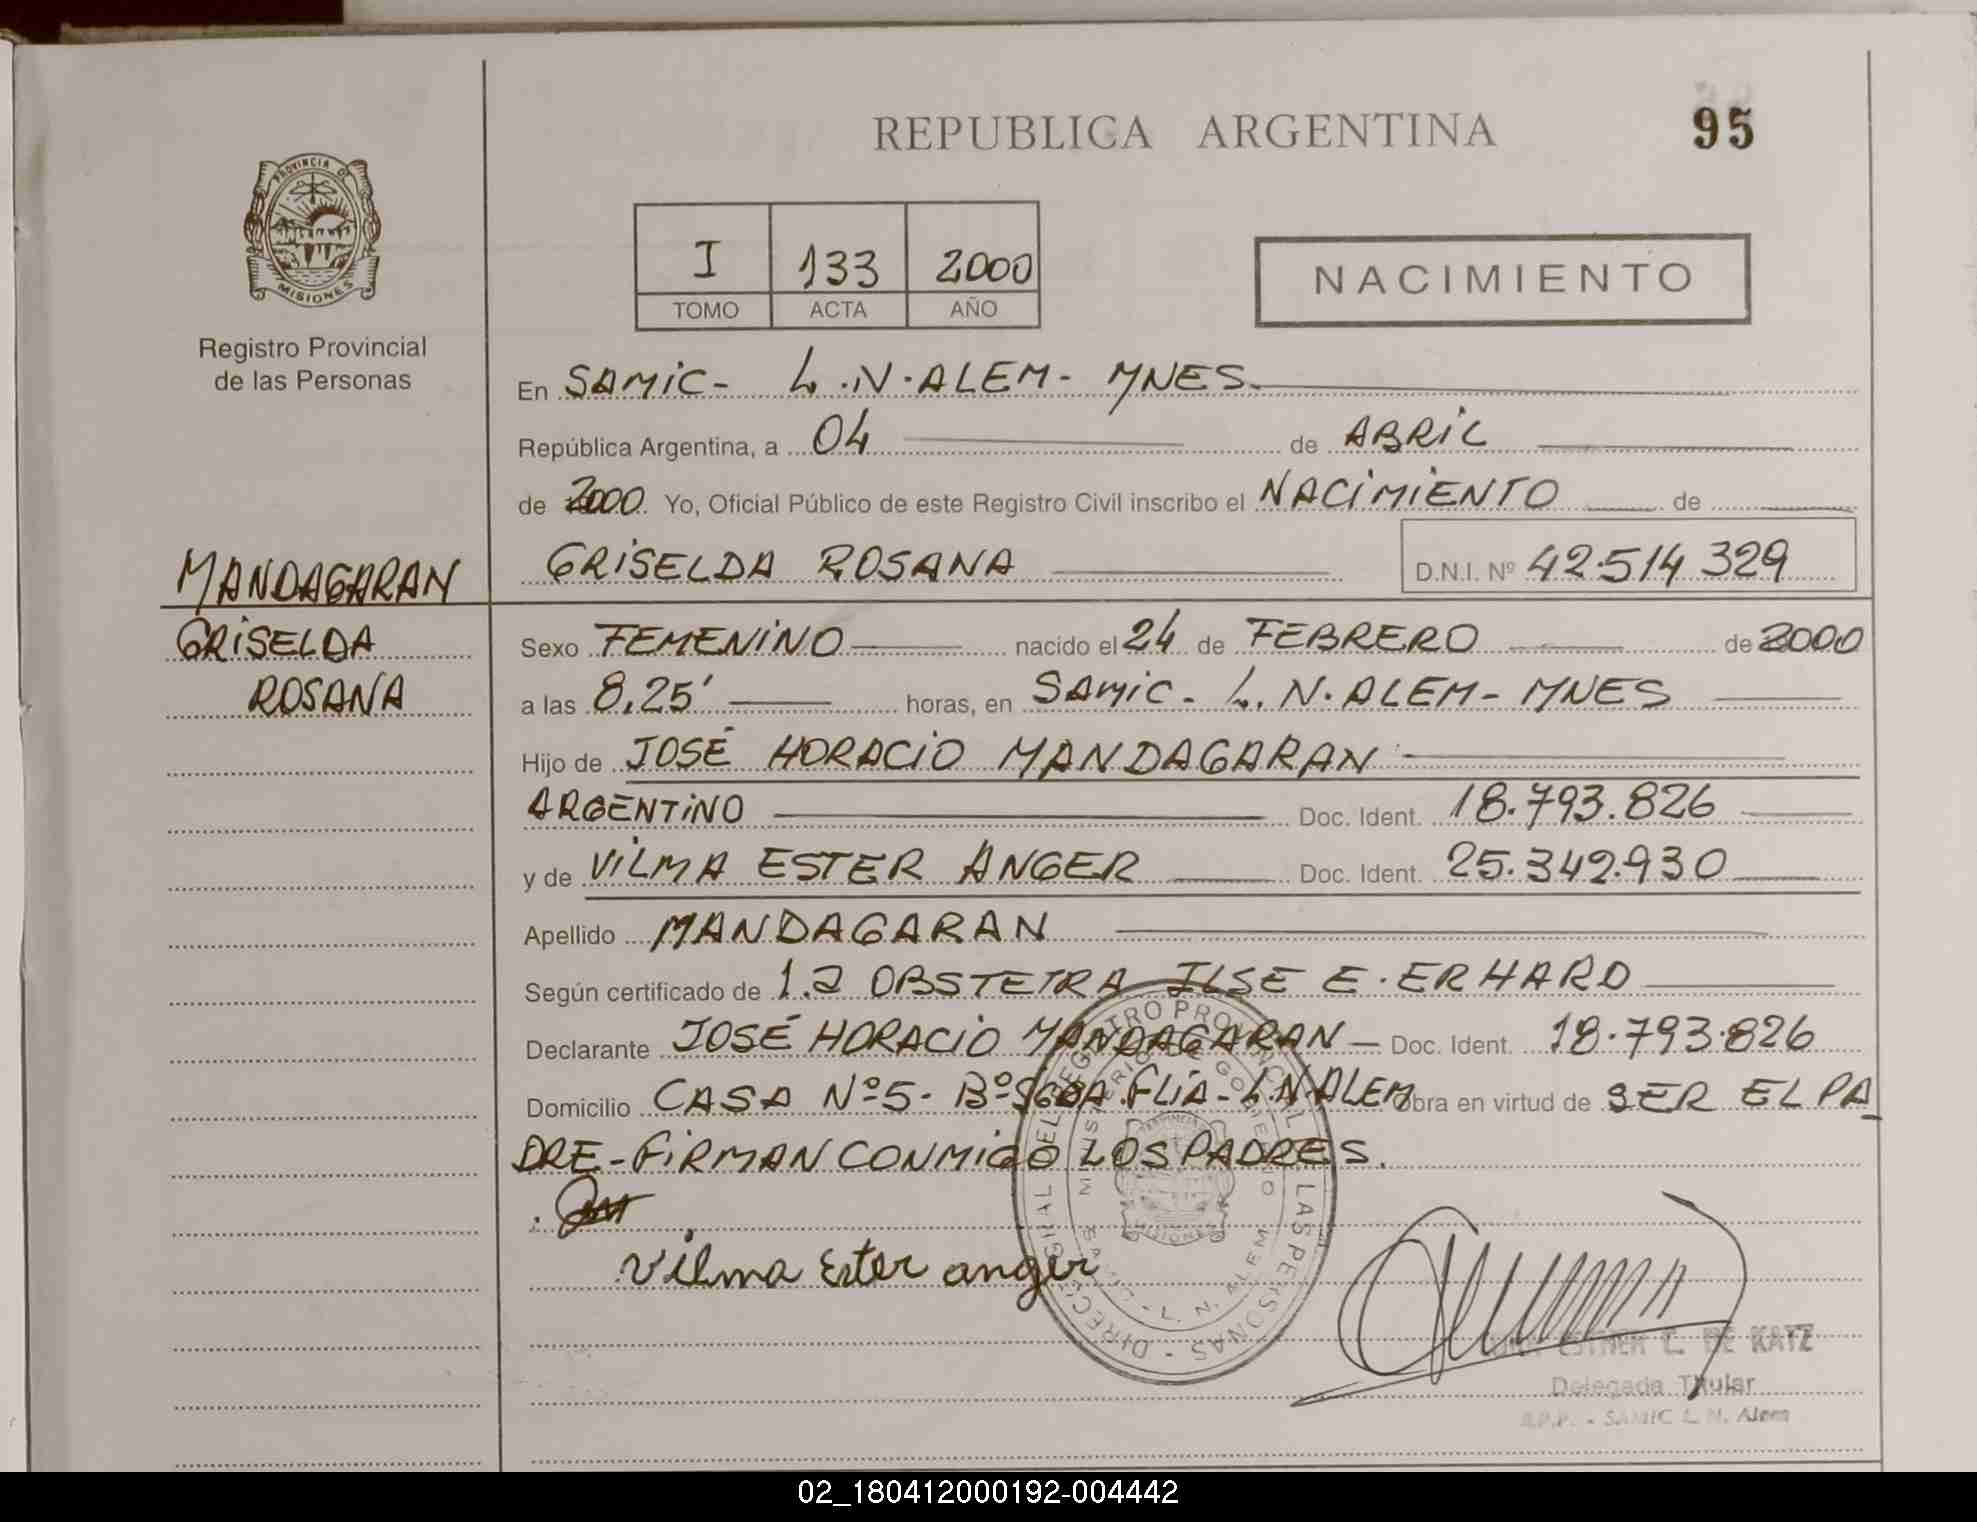 REPUBLICA ARGENTINA
95
PROVINCIA D
MISIONES
Registro Provincial
de las Personas
I 133 2000
TOMO ACTA AÑO
NACIMIENTO
En SAMIC - L.N. ALEM - MNES.
República Argentina, a 04 de ABRIL
de 2000. Yo, Oficial Público de este Registro Civil inscribo el NACIMIENTO de
GRISELDA ROSANA D.N.I. Nº 42.514.329
MANDAGARAN
GRISELDA
ROSANA
Sexo FEMENINO nacido el 24 de FEBRERO de 2000
a las 8,25' horas, en SAMIC - L. N. ALEM - MNES
Hijo de JOSÉ HORACIO MANDAGARAN
ARGENTINO Doc. Ident. 18.793.826
y de VILMA ESTER ANGER Doc. Ident. 25.342.930
Apellido MANDAGARAN
Según certificado de 1.a OBSTETRA ILSE E. ERHARD
Declarante JOSÉ HORACIO MANDAGARAN - Doc. Ident. 18.793.826
Domicilio CASA Nº 5 - Bº SGDA FLIA - L.N ALEM Obra en virtud de SER EL PA
DRE - FIRMAN CONMIGO LOS PADRES.
Vilma Ester anger
DIRECCION REGISTRO PROVINCIAL DE LAS PERSONAS
MINISTERIO DE GOBIERNO
SAMIC - L. N. ALEM
MISIONES
ESTHER C. DE KATZ
Delegada Titular
R.P.P. - SAMIC L. N. Alem
02_180412000192-004442